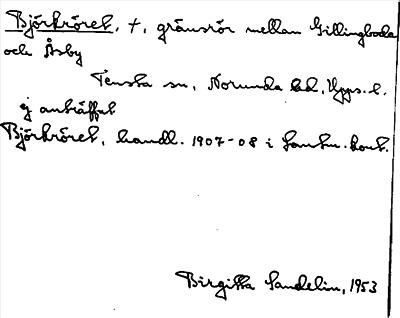 Björkröret, +, gränsrör mellan Gillingboda
och Åsby
Tensta sn, Norunda hd, Upps. l.
ej anträffat
Björkröret, handl. 1907-08 i Lantm. kont.
Birgitta Sandelin, 1953